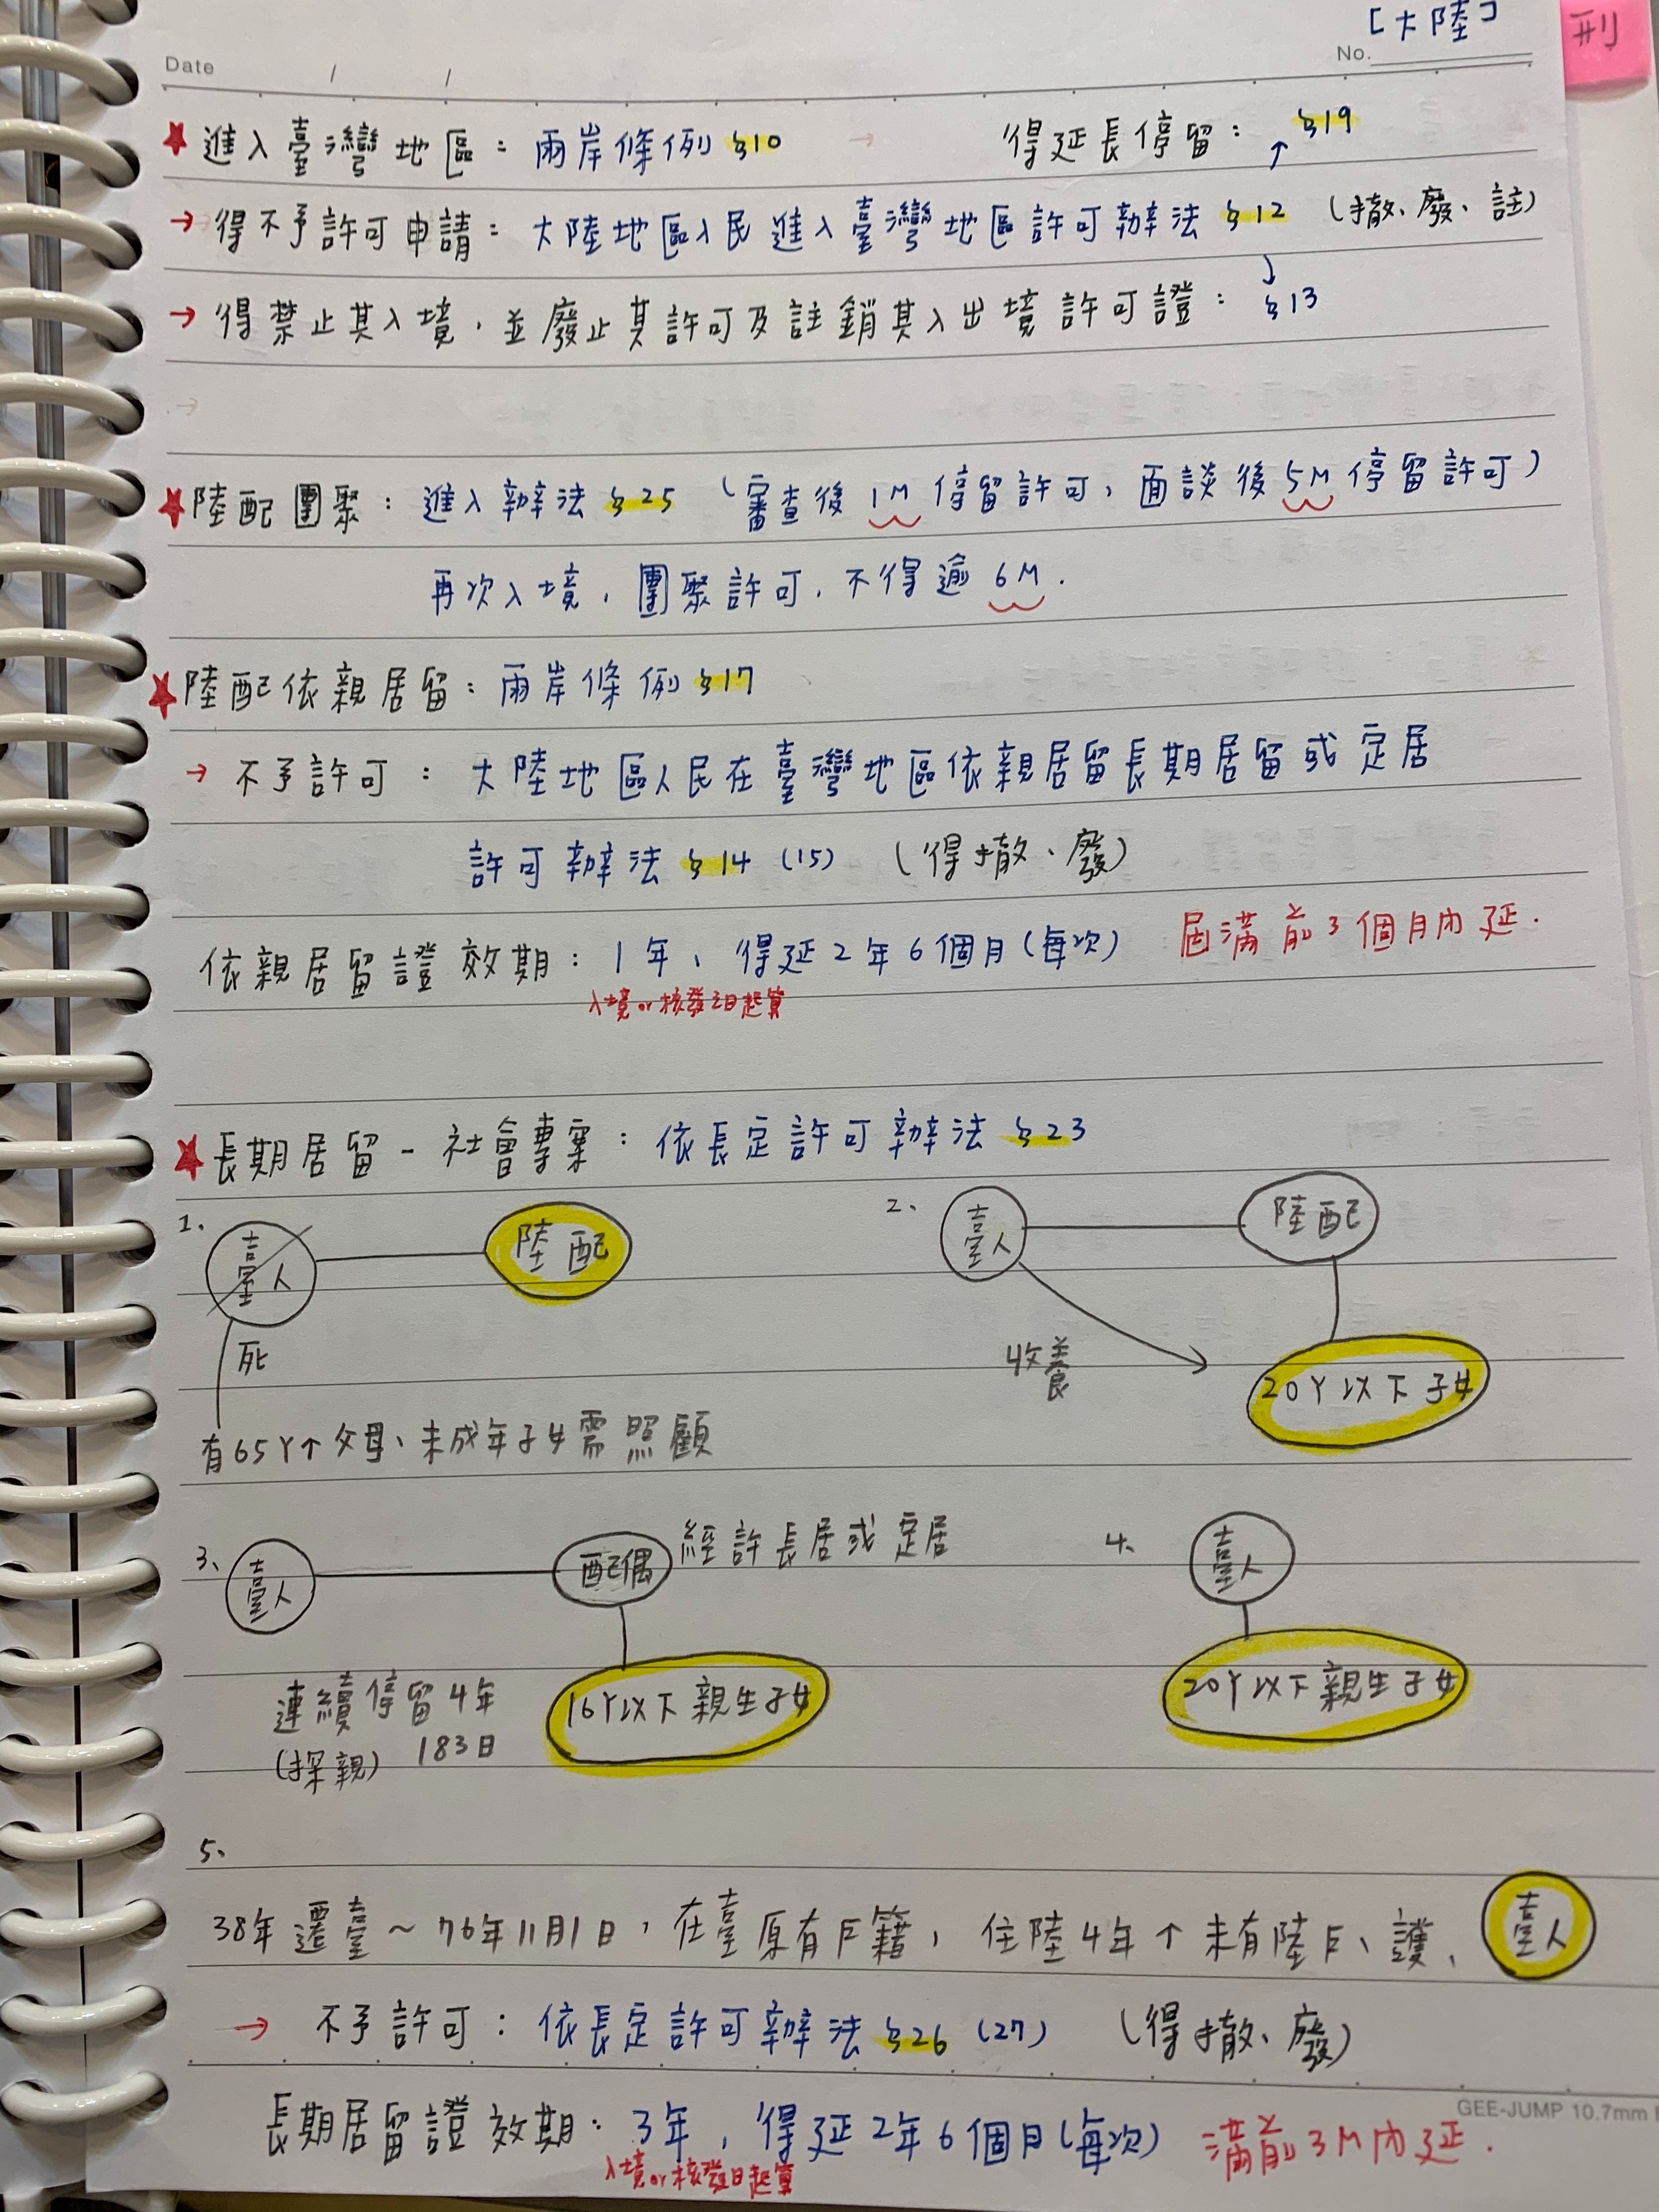 [大陸]
刑
Date / /
No.
★進入臺灣地區：兩岸條例§10 → 得延長停留：§19
→ 得不予許可申請：大陸地區人民進入臺灣地區許可辦法§12 (撤、廢、註)
→ 得禁止其入境，並廢止其許可及註銷其入出境許可證：§13
→
★陸配團聚：進入辦法§25 (審查後1M停留許可，面談後5M停留許可)
再次入境，團聚許可，不得逾6M.
★陸配依親居留：兩岸條例§17
→ 不予許可：大陸地區人民在臺灣地區依親居留長期居留或定居
許可辦法§14 (15) (得撤、廢)
依親居留證效期：1年，得延2年6個月(每次) 屆滿前3個月內延.
入境or核發之日起算
★長期居留-社會專案：依長定許可辦法§23
1、 臺人 陸配
死
有65Y↑父母、未成年子女需照顧
2、 臺人 陸配
收養
20Y以下子女
3、 臺人 配偶 經許長居或定居
連續停留4年 16Y以下親生子女
(探親) 183日
4、 臺人
20Y以下親生子女
5、
38年遷臺～76年11月1日，在臺原有戶籍，住陸4年↑未有陸戶、護、 臺人
→ 不予許可：依長定許可辦法§26 (27) (得撤、廢)
長期居留證效期：3年，得延2年6個月(每次) 滿前3M內延.
入境or核發日起算
GEE-JUMP 10.7mm